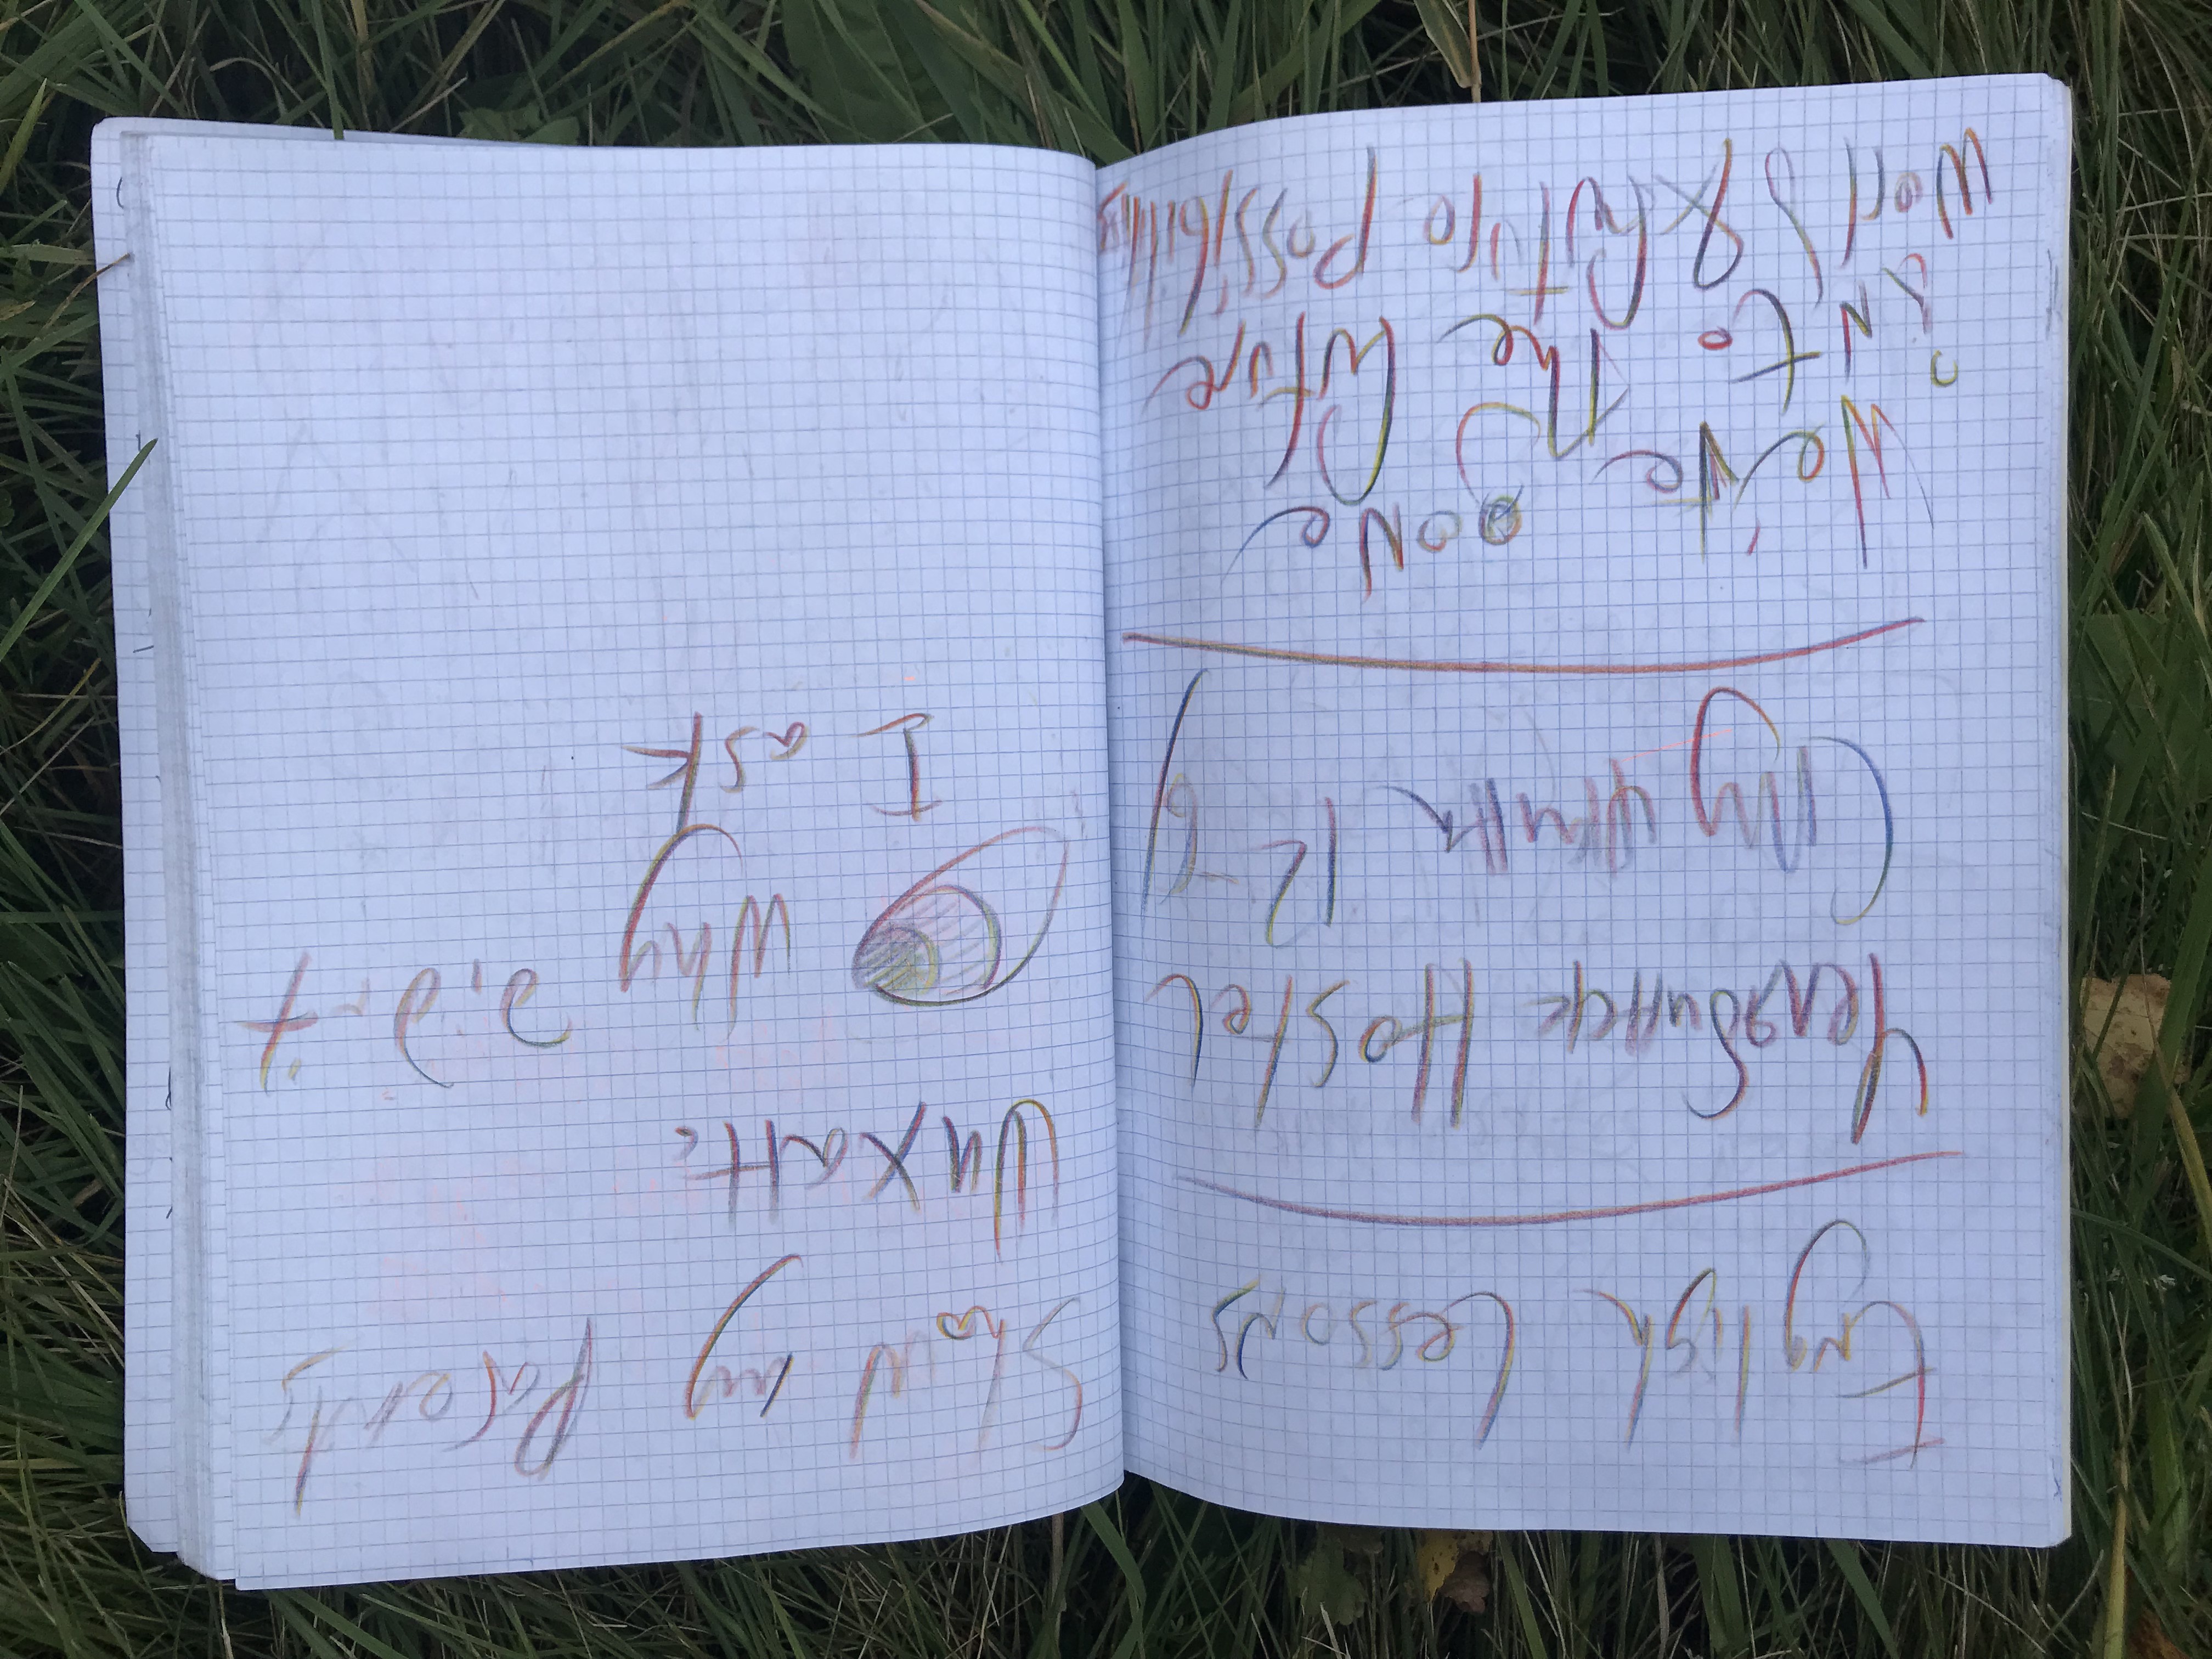 English Lessons
Челябинск Hostel
12-6)
We've gone
into The future
world & future possibilities
Show my Parents
Шихан
Why didn't
I ask